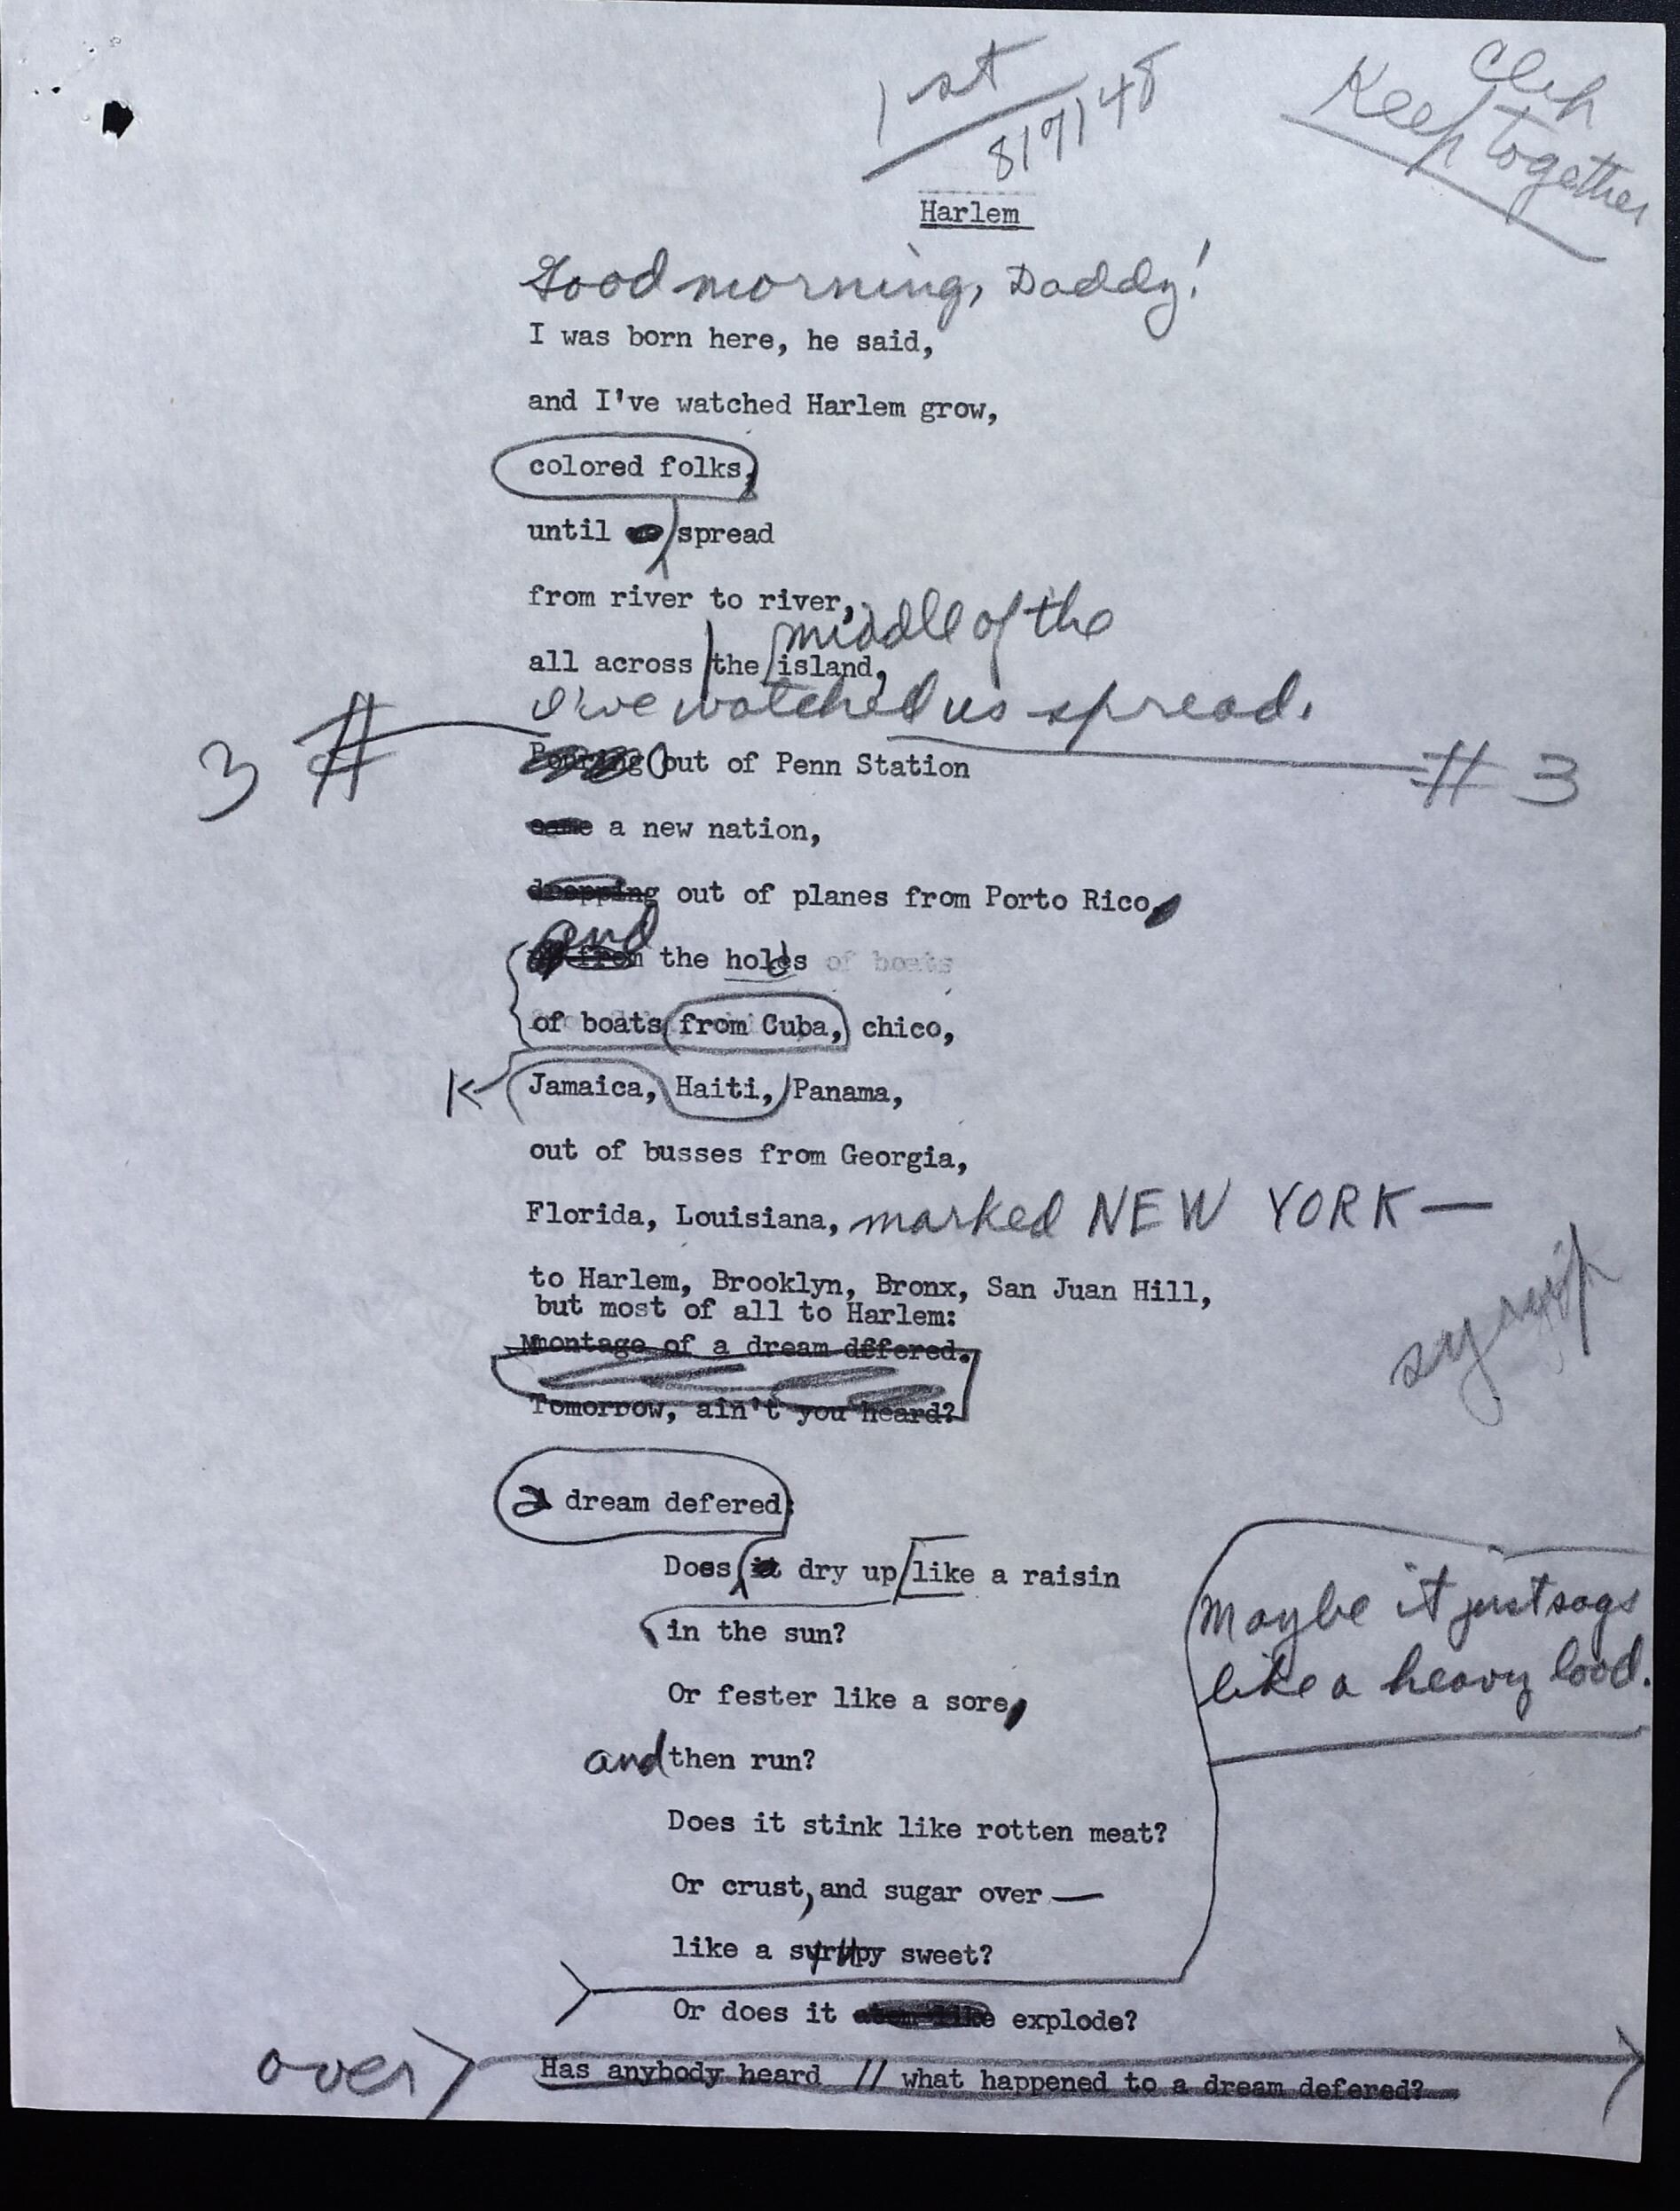 1st
8/7/48
Clip
Keep together
Harlem
Good morning, Daddy!
I was born here, he said,
and I've watched Harlem grow,
colored folks,
until spread
from river to river,
middle of the
all across the island,
I've watched us spread.
3 #
# 3
Pouring out of Penn Station
came a new nation,
dropping out of planes from Porto Rico,
and
from the holds of boats
of boats from Cuba, chico,
Jamaica, Haiti, Panama,
out of busses from Georgia,
Florida, Louisiana, marked NEW YORK —
to Harlem, Brooklyn, Bronx, San Juan Hill,
but most of all to Harlem:
montage of a dream dffered.
Tomorrow, ain't you heard?
a dream defered:
Does it dry up like a raisin
in the sun?
Maybe it just sags
like a heavy load.
Or fester like a sore,
and then run?
Does it stink like rotten meat?
Or crust, and sugar over —
like a syrupy sweet?
Or does it explode?
over
Has anybody heard // what happened to a dream defered?